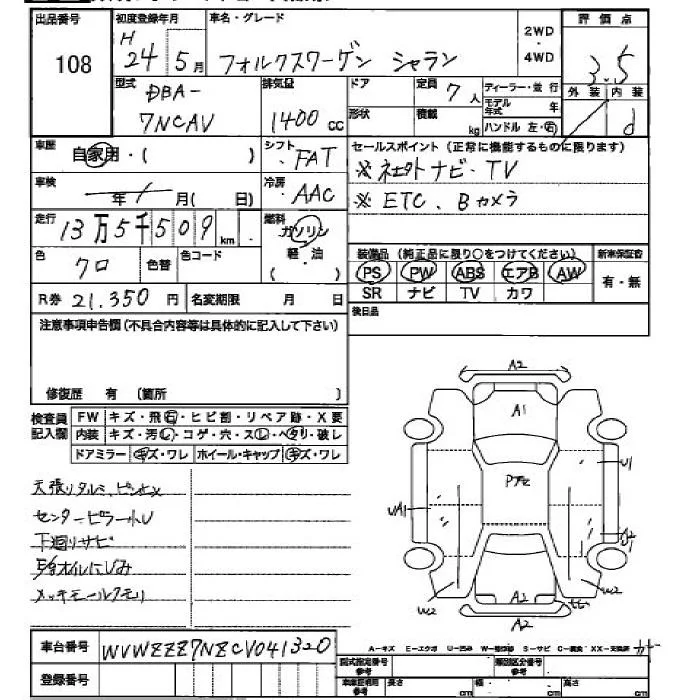 出品番号 初度登録年月 車名・グレード 2WD ・ 4WD 評価点
108 H 24年 5月 フォルクスワーゲン シャラン 3.5
型式 DBA- 7NCAV 排気量 1400cc ドア 定員 7人 ディーラー・並行 外装 内装
形状 積載 kg モデル年式 年 ハンドル 左・右 d
車歴 自家用・( ) シフト FAT セールスポイント(正常に機能するものに限ります)
※社外ナビ・TV
車検 年 月( 日) 冷房 AAC
※ETC、Bカメラ
走行 13万5千509km 燃料 ガソリン 軽・油 ( )
装備品(純正品に限り○をつけてください) 新車保証書
色 クロ 色替 色コード PS PW ABS エアB AW 有・無
R券 21,350円 名変期限 月 日 SR ナビ TV カワ
注意事項申告欄(不具合内容等は具体的に記入して下さい) 後日品
修復歴 有 (箇所 )
検査員記入欄 FW キズ・飛石・ヒビ割・リペア跡・X要
内装 キズ・汚レ・コゲ・穴・スレ・ヘタリ・破レ
ドアミラー キズ・ワレ ホイール・キャップ キズ・ワレ
A2
A1
U1
UA1
A2
U1
W2
A2
W2
A2
天張りタルミ、ピンホメ
センターピラー小U
下廻リサビ
E/gオイルにじみ
メッキモールクモリ
車台番号 WVWZZZ7NZCV041320
A-キズ E-エクボ U-凹み W-補修跡 S-サビ C-腐食 XX-交換済
登録番号 型式指定番号 類別区分番号
車庫証明用参考 長さ cm 幅 cm 高さ cm